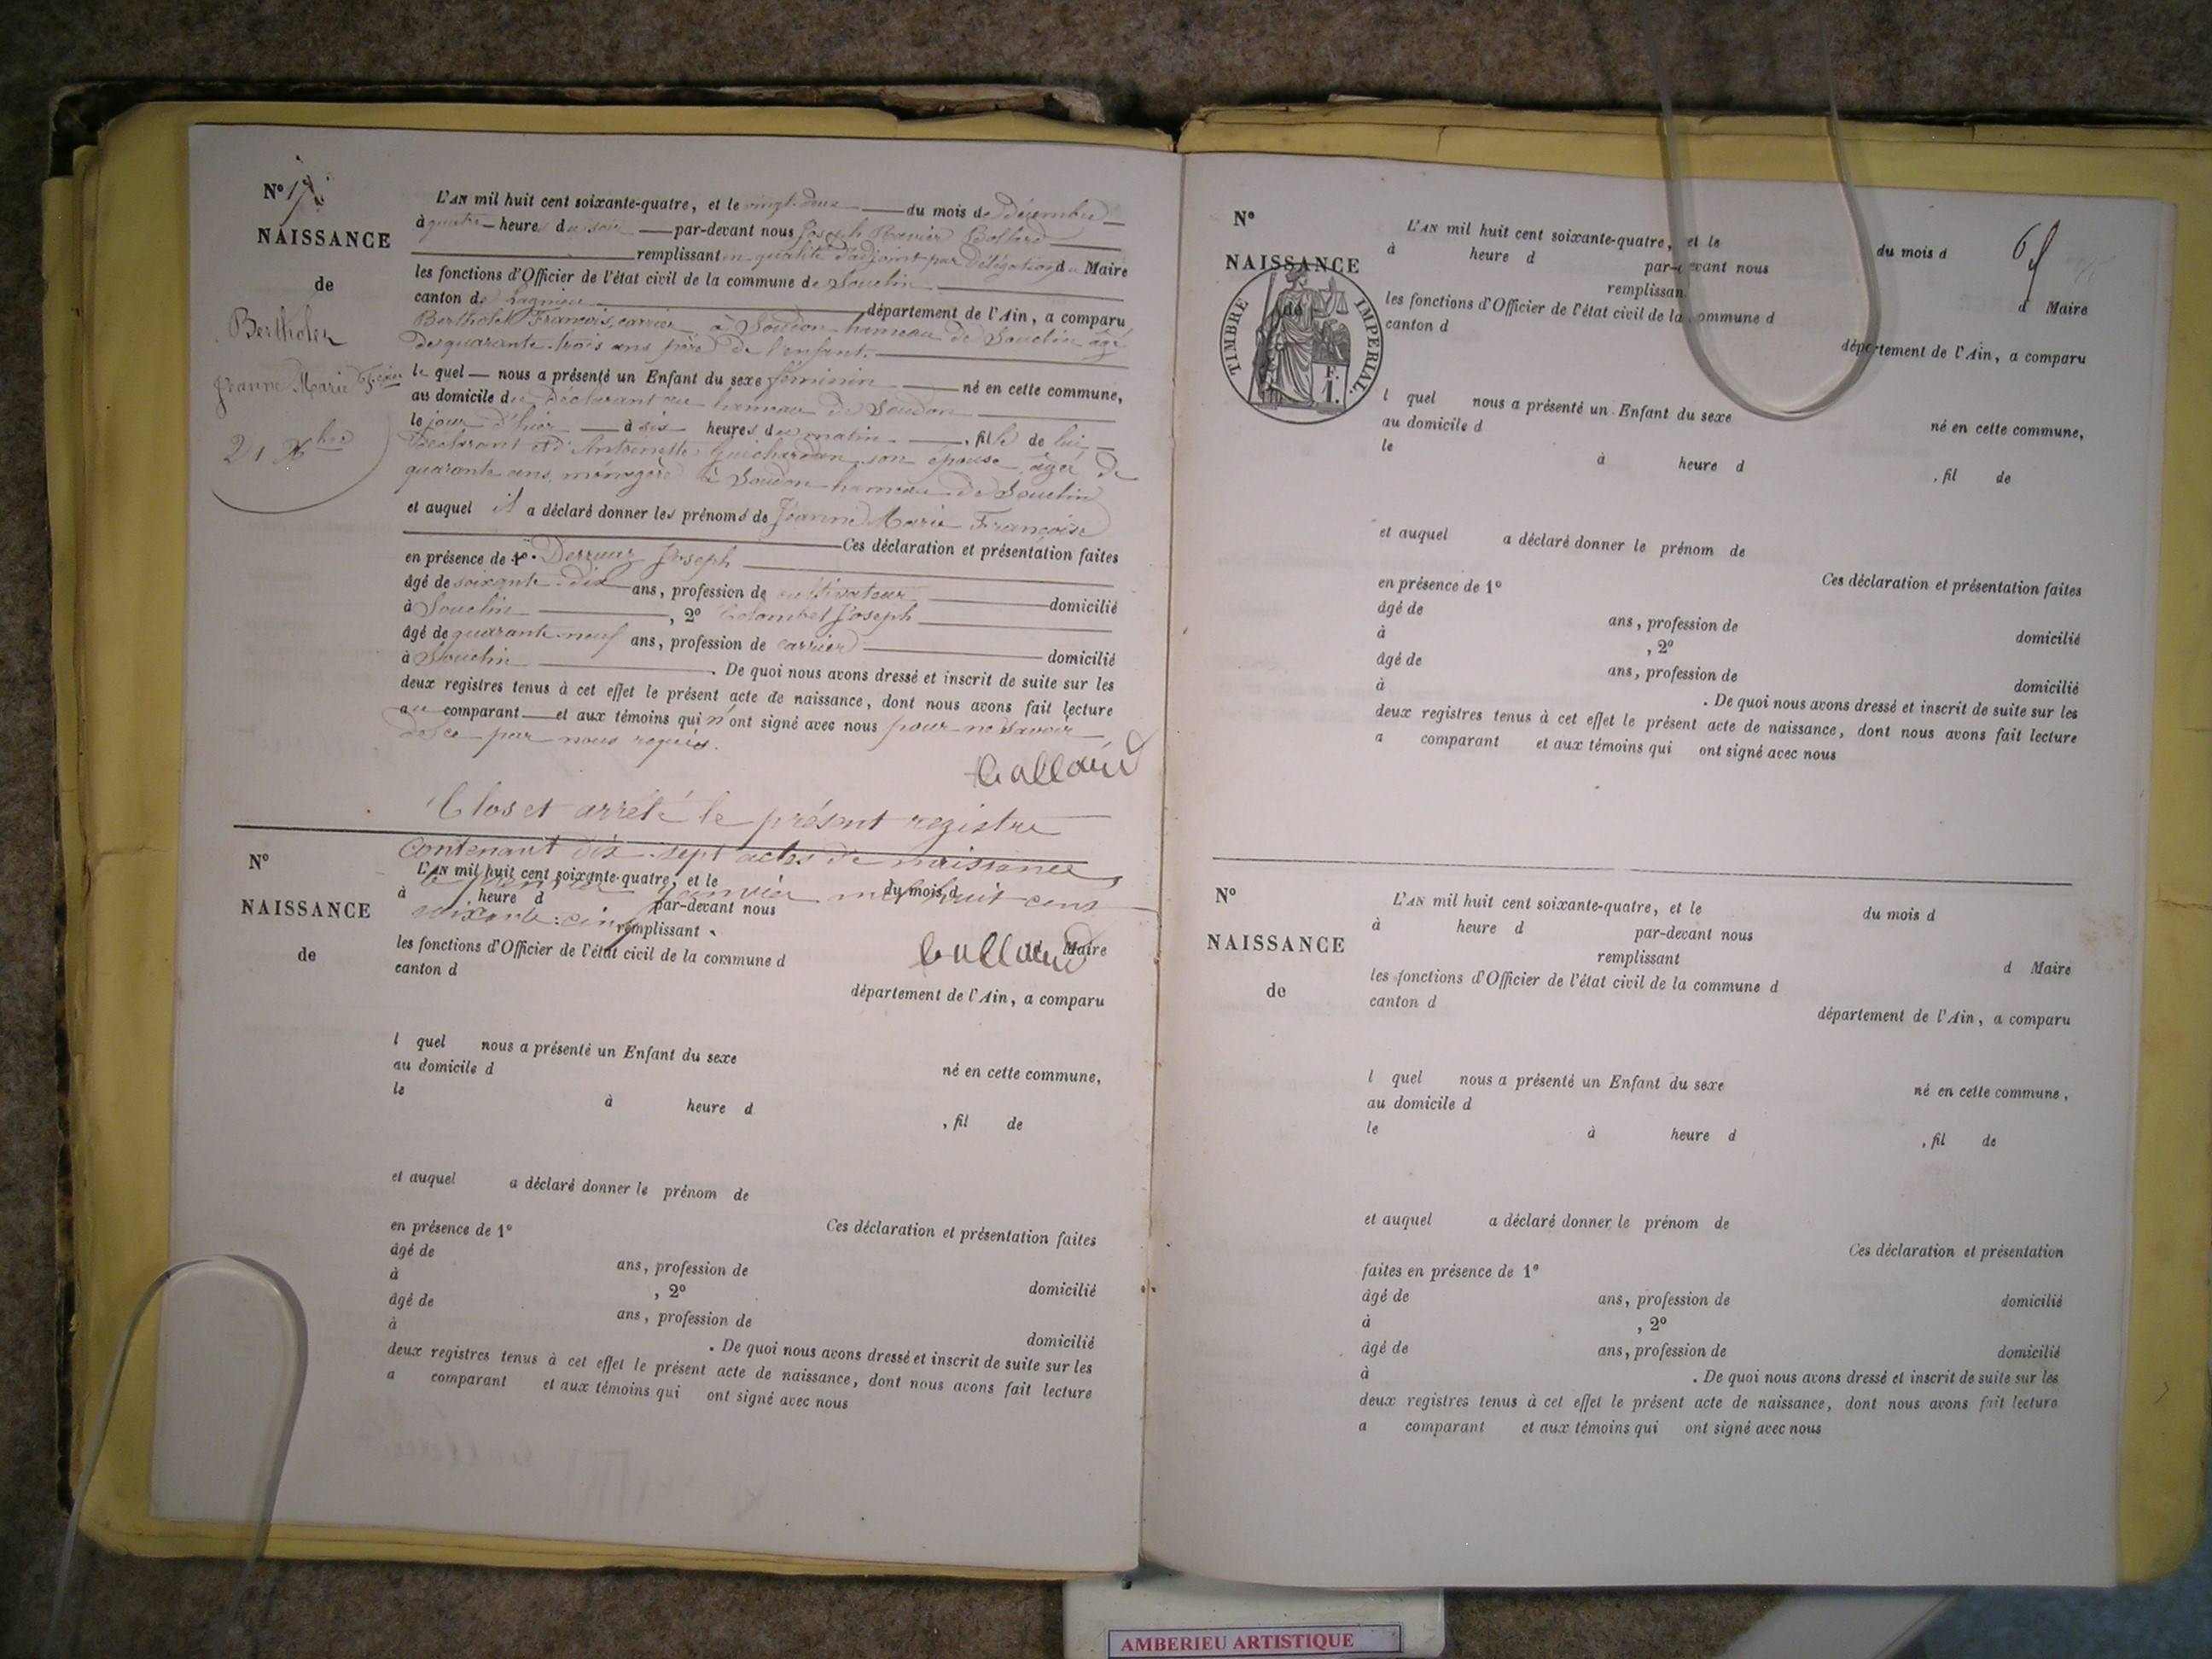 N° 17
NAISSANCE
de
Bertholet
Jeanne Marie Fçoise
21 Xbre
L'AN mil huit cent soixante-quatre, et le vingt-deux du mois de Décembre
à quatre heures du soir par-devant nous Joseph Xavier
remplissant en qualité d'adjoint par délégation du Maire
les fonctions d'Officier de l'état civil de la commune de Souclin
canton de Lagnieu département de l'Ain, a comparu
Bertholet François, carrier, à Soudon hameau de Souclin âgé
de quarante-trois ans père de l'enfant.
lequel nous a présenté un Enfant du sexe féminin né en cette commune,
au domicile du déclarant au hameau de Soudon
le jour d'hier à six heures du matin, fille de lui
déclarant et d'Antoinette Guichardan son épouse, âgée de
quarante ans, ménagère à Soudon hameau de Souclin
et auquel il a déclaré donner les prénoms de Jeanne Marie Françoise
Ces déclaration et présentation faites
en présence de 1° Derruaz Joseph
âgé de soixante-dix ans, profession de cultivateur domicilié
à Souclin, 2° Colombet Joseph
âgé de quarante-neuf ans, profession de carrier domicilié
à Souclin. De quoi nous avons dressé et inscrit de suite sur les
deux registres tenus à cet effet le présent acte de naissance, dont nous avons fait lecture
au comparant et aux témoins qui n'ont signé avec nous pour ne savoir
de ce par nous requis.
Clos et arrêté le présent registre
Contenant dix-sept actes de naissance,
le premier janvier mil huit cent
soixante-cinq
N°
NAISSANCE
de
L'AN mil huit cent soixante-quatre, et le du mois d
à heure d par-devant nous
remplissant d Maire
les fonctions d'Officier de l'état civil de la commune d
canton d département de l'Ain, a comparu
l quel nous a présenté un Enfant du sexe né en cette commune,
au domicile d
le à heure d , fil de
et auquel a déclaré donner le prénom de
Ces déclaration et présentation faites
en présence de 1°
âgé de ans, profession de domicilié
à , 2°
âgé de ans, profession de domicilié
à . De quoi nous avons dressé et inscrit de suite sur les
deux registres tenus à cet effet le présent acte de naissance, dont nous avons fait lecture
a comparant et aux témoins qui ont signé avec nous
N°
NAISSANCE
de
TIMBRE IMPERIAL.
F.
1.
L'AN mil huit cent soixante-quatre, et le du mois d
à heure d par-devant nous
remplissan d Maire
les fonctions d'Officier de l'état civil de la commune d
canton d département de l'Ain, a comparu
l quel nous a présenté un Enfant du sexe né en cette commune,
au domicile d
le à heure d , fil de
et auquel a déclaré donner le prénom de
Ces déclaration et présentation faites
en présence de 1°
âgé de ans, profession de domicilié
à , 2°
âgé de ans, profession de domicilié
à . De quoi nous avons dressé et inscrit de suite sur les
deux registres tenus à cet effet le présent acte de naissance, dont nous avons fait lecture
a comparant et aux témoins qui ont signé avec nous
N°
NAISSANCE
de
L'AN mil huit cent soixante-quatre, et le du mois d
à heure d par-devant nous
remplissant d Maire
les fonctions d'Officier de l'état civil de la commune d
canton d département de l'Ain, a comparu
l quel nous a présenté un Enfant du sexe né en cette commune,
au domicile d
le à heure d , fil de
et auquel a déclaré donner le prénom de
Ces déclaration et présentation
faites en présence de 1°
âgé de ans, profession de domicilié
à , 2°
âgé de ans, profession de domicilié
à . De quoi nous avons dressé et inscrit de suite sur les
deux registres tenus à cet effet le présent acte de naissance, dont nous avons fait lecture
a comparant et aux témoins qui ont signé avec nous
AMBERIEU ARTISTIQUE